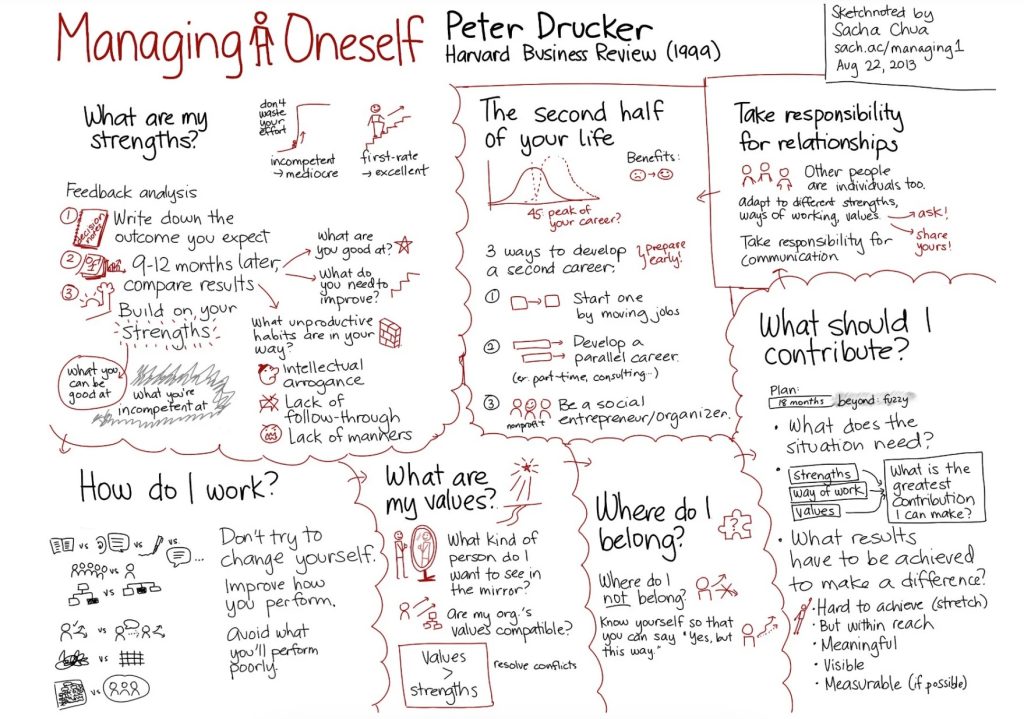 Managing Oneself
Peter Drucker
Harvard Business Review (1999)
Sketchnoted by
Sacha Chua
sach.ac/managing1
Aug 22, 2013
What are my
strengths?
don't
waste
your
effort
incompetent
→ mediocre
first-rate
→ excellent
Feedback analysis
1
Decision
notes
Write down the
outcome you expect
2
9-12 months later,
compare results
What are
you good at?
What do
you need to
improve?
3
Build on your
strengths
What you
can be
good at
What you're
incompetent at
What unproductive
habits are in your
way?
Intellectual
arrogance
Lack of
follow-through
Lack of manners
How do I work?
vs
vs
vs.
...
vs
vs
vs
vs
vs
Don't try to
change yourself.
Improve how
you perform.
Avoid what
you'll perform
poorly.
What are
my values?
What kind of
person do I
want to see in
the mirror?
Are my org.'s
values compatible?
Values
>
strengths
resolve conflicts
Where do I
belong?
?
Where do I
not belong?
Know yourself so that
you can say "Yes, but
this way."
What should I
contribute?
Plan:
18 months
beyond: fuzzy
• What does the
situation need?
• strengths
way of work
values
What is the
greatest
contribution
I can make?
• What results
have to be achieved
to make a difference?
• Hard to achieve (stretch)
• But within reach
• Meaningful
• Visible
• Measurable (if possible)
Take responsibility
for relationships
Other people
are individuals too.
adapt to different strengths,
ways of working, values
→ ask!
→ share
yours!
Take responsibility for
communication
The second half
of your life
Benefits:
45: peak of
your career?
3 ways to develop
a second career:
prepare
early!
1
Start one
by moving jobs
2
Develop a
parallel career.
(ex. part-time, consulting...)
3
nonprofit
Be a social
entrepreneur/organizer.